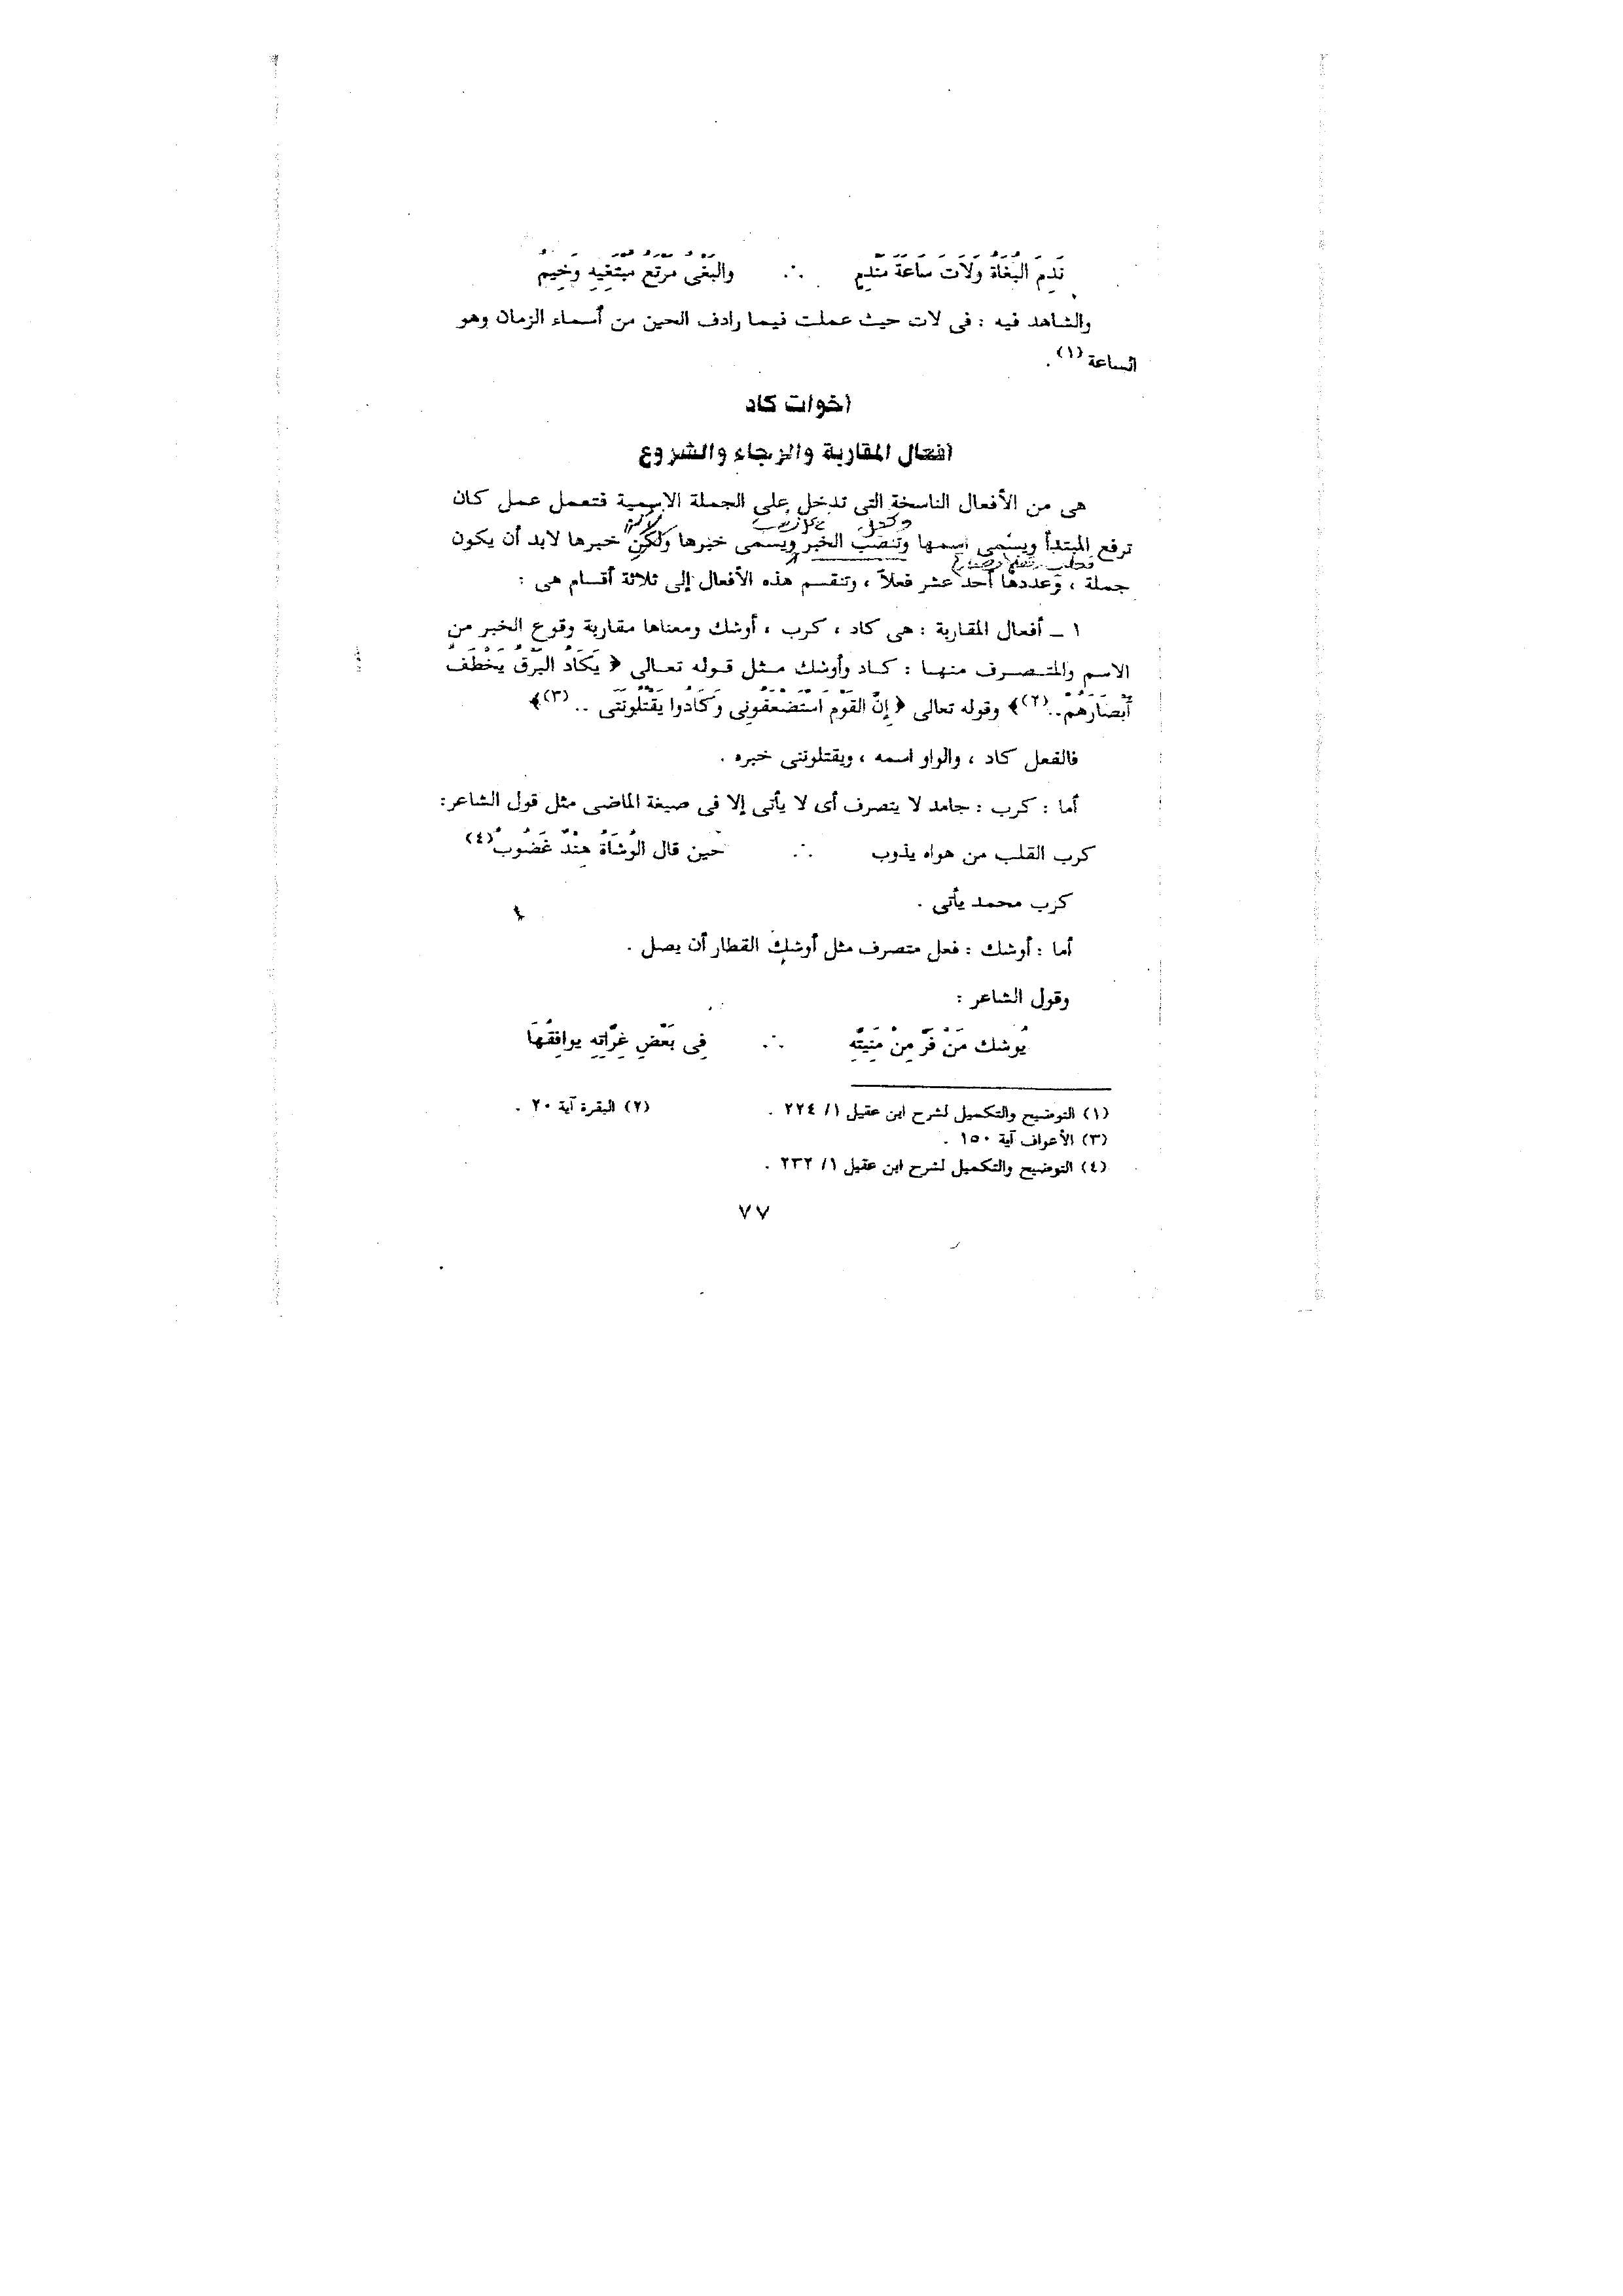 نَدِمَ البُغَاةُ وَلَاتَ سَاعَةَ مَنْدَمِ ∴ والبَغْىُ مَرْتَعُ مُبْتَغِيهِ وَخِيمُ
والشاهد فيه : فى لات حيث عملت فيما رادف الحين من أسماء الزمان وهو
الساعة (١) .
أخوات كاد
أفعال المقاربة والرجاء والشروع
هى من الأفعال الناسخة التى تدخل على الجملة الاسمية فتعمل عمل كان
ترفع المبتدأ ويسمى اسمها وتنصب الخبر ويسمى خبرها ولكن خبرها لابد أن يكون
جملة ، وعددها أحد عشر فعلاً ، وتنقسم هذه الأفعال إلى ثلاثة أقسام هى :
١ ـ أفعال المقاربة : هى كاد ، كرب ، أوشك ومعناها مقاربة وقوع الخبر من
الاسم والمتصرف منها : كاد وأوشك مثل قوله تعالى ﴿ يَكَادُ البَرْقُ يَخْطَفُ
أَبْصَارَهُمْ..(٢)﴾ وقوله تعالى ﴿ إِنَّ القَوْمَ اسْتَضْعَفُونِى وَكَادُوا يَقْتُلُونَنَى .. (٣)﴾
فالفعل كاد ، والواو اسمه ، ويقتلوننى خبره .
أما : كرب : جامد لا يتصرف أى لا يأتى إلا فى صيغة الماضى مثل قول الشاعر:
كرب القلب من هواه يذوب ∴ حين قال الوُشَاةُ هِنْدٌ غَضُوبُ(٤)
كرب محمد يأتى .
أما : أوشك : فعل متصرف مثل أوشك القطار أن يصل .
وقول الشاعر :
يُوشك مَنْ فَرَّ مِنْ مَنِيَّتِهِ ∴ فِى بَعْضِ غِرَّاتِهِ يوافِقُهَا
(١) التوضيح والتكميل لشرح ابن عقيل ١/ ٢٢٤ . (٢) البقرة آية ٢٠ .
(٣) الأعراف آية ١٥٠ .
(٤) التوضيح والتكميل لشرح ابن عقيل ١/ ٢٣٢ .
٧٧